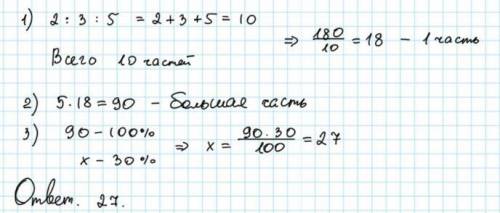 1) 2 : 3 : 5 = 2 + 3 + 5 = 10
Всего 10 частей
⇒ 180/10 = 18 - 1 часть
2) 5 · 18 = 90 - большая часть
3) 90 - 100%
x - 30%
⇒ x = 90 · 30/100 = 27
Ответ. 27.